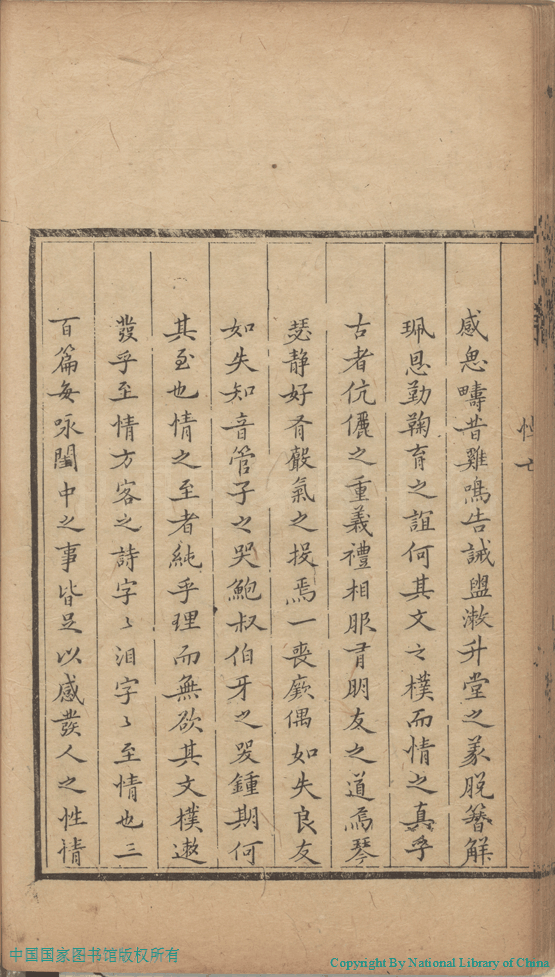 感思疇昔雞鳴告誡盥漱升堂之脫簪解
珮恩勤鞠育之誼何其文之樸而情之真乎
古者伉儷之重義禮相服有朋友之道焉琴
瑟静好有聲氣之投焉一喪厥偶如失良友
如失知音管子之哭鮑叔伯牙之哭鍾期何
其至也情之至者純乎理而無欲其文樸遬
發乎至情方客之詩字〻泪字〻至情也三
百篇每咏閨中之事皆足以感發人之性情
中国国家图书馆版权所有
Copyright By National Library of China.